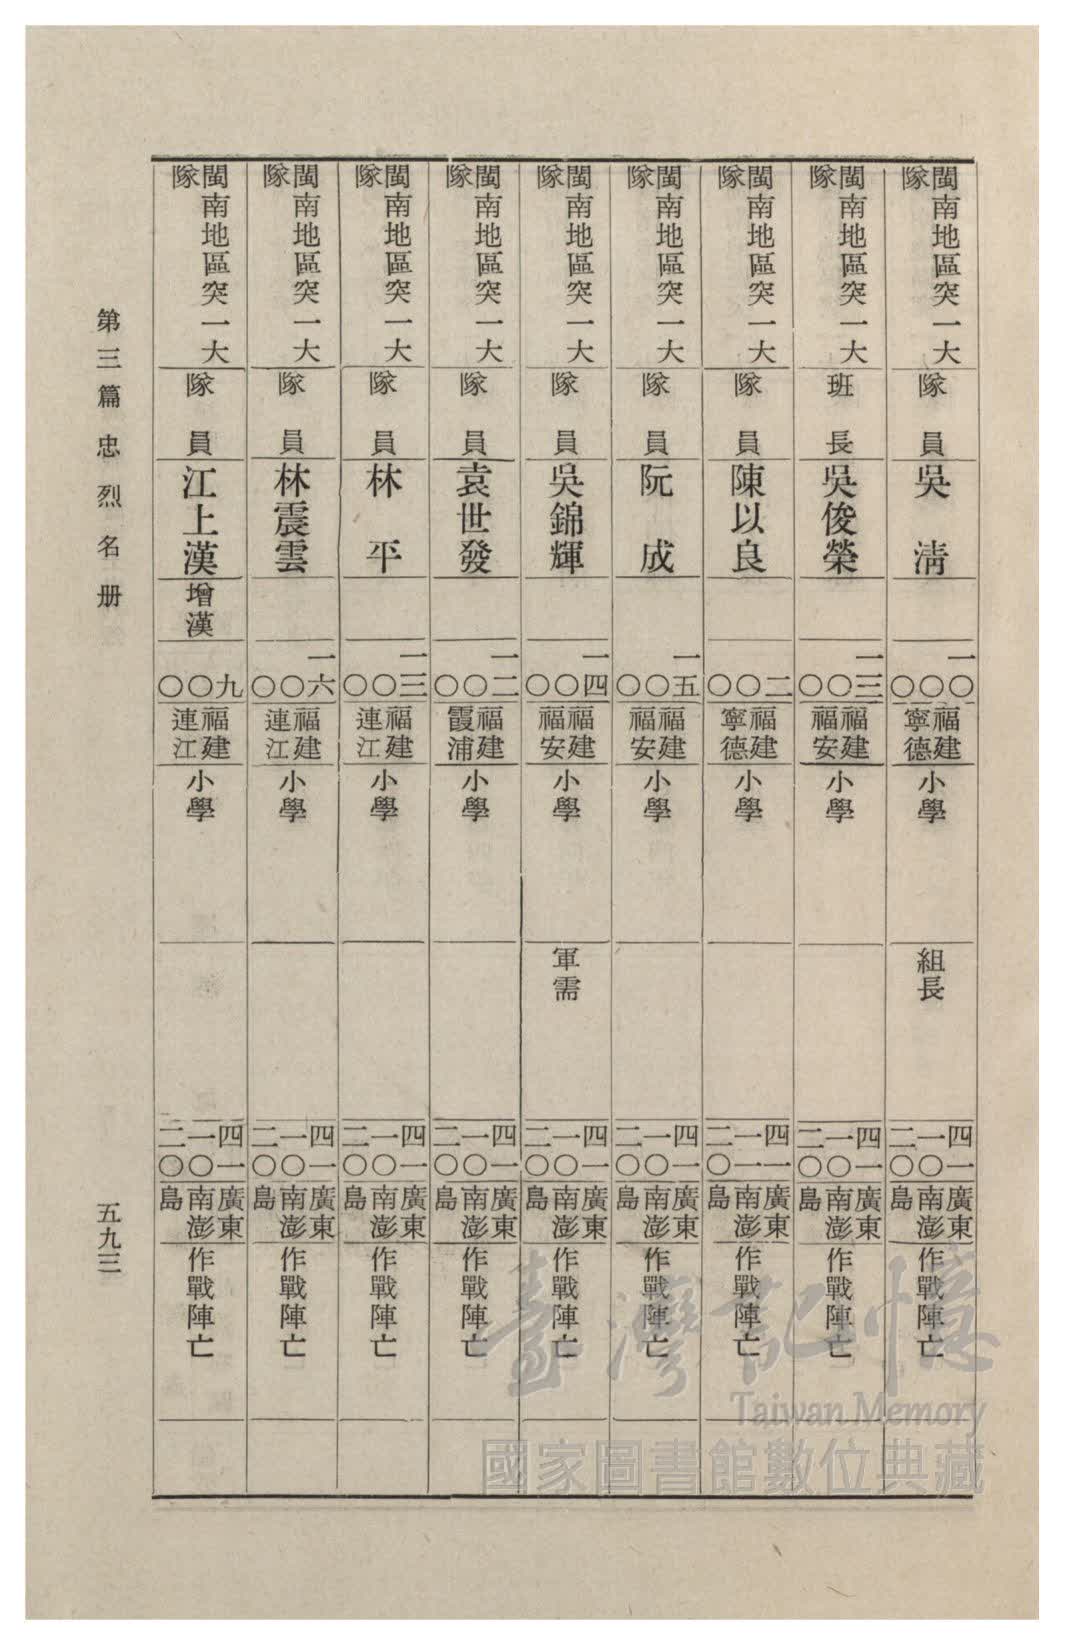 閩南地區突一大
隊
隊員
吳清
一〇
〇
〇
福建
寧德
小學
組長
四一
一〇
二〇
廣東
南澎
島
作戰陣亡
閩南地區突一大
隊
班長
吳俊榮
一三
〇
〇
福建
福安
小學
四一
一〇
二〇
廣東
南澎
島
作戰陣亡
閩南地區突一大
隊
隊員
陳以良
二
〇
〇
福建
寧德
小學
四一
一一
二〇
廣東
南澎
島
作戰陣亡
閩南地區突一大
隊
隊員
阮成
一五
〇
〇
福建
福安
小學
四一
一〇
二〇
廣東
南澎
島
作戰陣亡
閩南地區突一大
隊
隊員
吳錦輝
一四
〇
〇
福建
福安
小學
軍需
四一
一〇
二〇
廣東
南澎
島
作戰陣亡
閩南地區突一大
隊
隊員
袁世發
一二
〇
〇
福建
霞浦
小學
四一
一〇
二〇
廣東
南澎
島
作戰陣亡
閩南地區突一大
隊
隊員
林平
一三
〇
〇
福建
連江
小學
四一
一〇
二〇
廣東
南澎
島
作戰陣亡
閩南地區突一大
隊
隊員
林震雲
一六
〇
〇
福建
連江
小學
四一
一〇
二〇
廣東
南澎
島
作戰陣亡
閩南地區突一大
隊
隊員
江上漢
增漢
九
〇
〇
福建
連江
小學
四一
一〇
二〇
廣東
南澎
島
作戰陣亡
第三篇 忠烈名册
五九三
臺灣記憶
Taiwan Memory
國家圖書館數位典藏